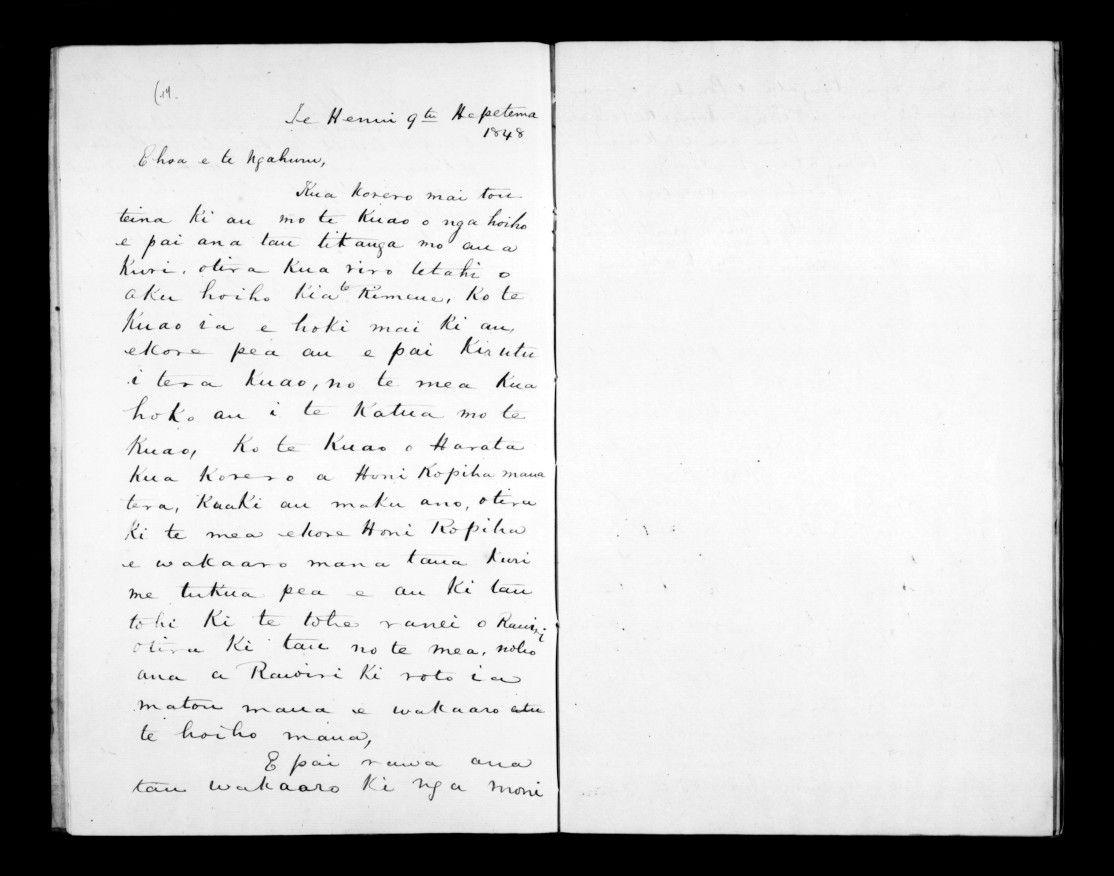 (14.
Te Henui 9th Hepetema
1848
E hoa e te Ngahuru,
Kua korero mai tou
teina ki au mo te Kuao o nga hoiho
e pai ana tau tikanga mo au a
Kuri, otira kua riro tetahi o
aku hoiho kia te Rimene, Ko te
Kuao ia e hoki mai ki au,
ekore pea au e pai kirutu
i tera Kuao, no te mea kua
hoko au i te Katua mo te
Kuao, Ko te Kuao o Harata
kua korero a Honi Ropiha mana
tera, kaaki au maku ano, otira
Ki te mea ekore Honi Ropiha
e wakaaro mana taua kuri
me tukua pea e au ki tau
tohi ki te tohe ranei o Rawiri
otira ki tau no te mea, noho
ana a Rawiri ki roto i a
matou mana e wakaaro atu
te hoiho mana,
E pai rawa ana
tau wakaaro ki nga moni